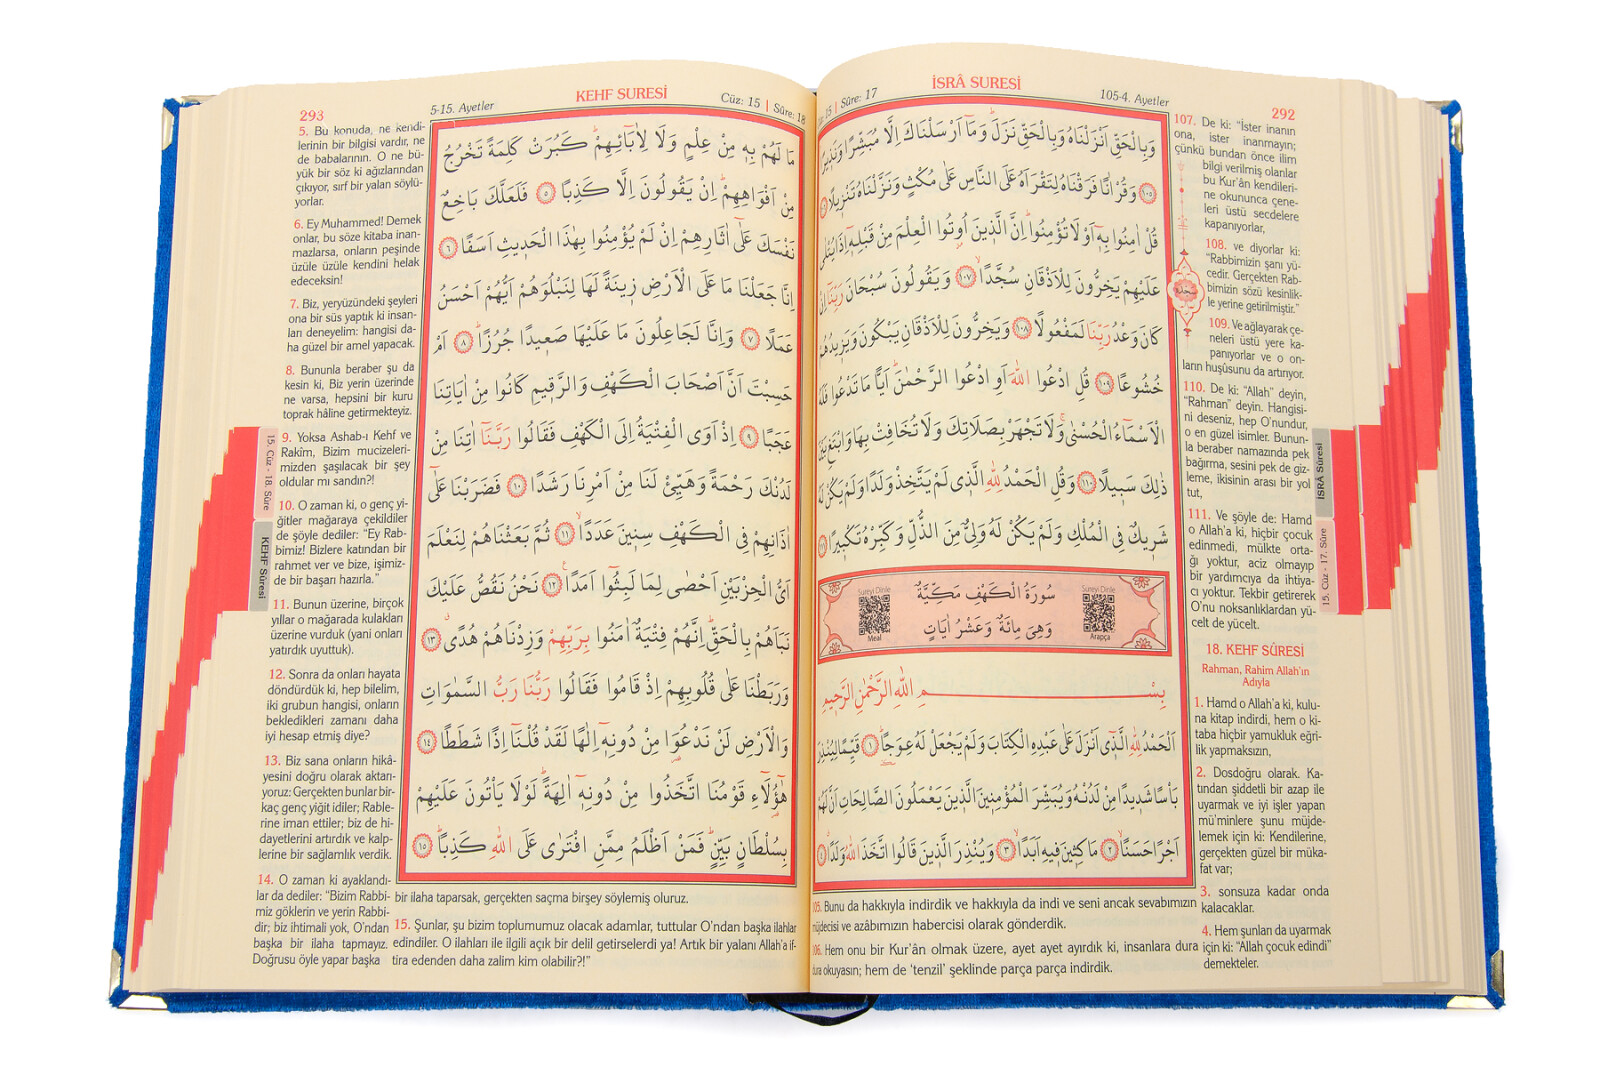 292
İSRÂ SURESİ
105-4. Ayetler
15 | Sûre: 17
وَبِالْحَقِّ اَنْزَلْنَاهُ وَبِالْحَقِّ نَزَلَۜ وَمَٓا اَرْسَلْنَاكَ اِلَّا مُبَشِّرًا وَنَذِيرًاۢ
﴿١٠٥﴾ وَقُرْاٰنًا فَرَقْنَاهُ لِتَقْرَاَهُ عَلَى النَّاسِ عَلٰى مُكْثٍ وَنَزَّلْنَاهُ تَنْزِيلًا
قُلْ اٰمِنُوا بِهٖٓ اَوْ لَا تُؤْمِنُواۜ اِنَّ الَّذِينَ اُوتُوا الْعِلْمَ مِنْ قَبْلِهٖٓ اِذَا يُتْلٰى
عَلَيْهِمْ يَخِرُّونَ لِلْاَذْقَانِ سُجَّدًاۙ ﴿١٠٧﴾ وَيَقُولُونَ سُبْحَانَ رَبِّنَٓا اِنْ
كَانَ وَعْدُ رَبِّنَا لَمَفْعُولًا ﴿١٠٨﴾ وَيَخِرُّونَ لِلْاَذْقَانِ يَبْكُونَ وَيَزِيدُهُمْ
خُشُوعًا ﴿١٠٩﴾ قُلِ ادْعُوا اللّٰهَ اَوِ ادْعُوا الرَّحْمٰنَۜ اَيًّا مَا تَدْعُوا فَلَهُ
الْاَسْمَٓاءُ الْحُسْنٰىۚ وَلَا تَجْهَرْ بِصَلَاتِكَ وَلَا تُخَافِتْ بِهَا وَابْتَغِ بَيْنَ
ذٰلِكَ سَبِيلًا ﴿١١٠﴾ وَقُلِ الْحَمْدُ لِلّٰهِ الَّذِي لَمْ يَتَّخِذْ وَلَدًا وَلَمْ يَكُنْ لَهُ
شَرِيكٌ فِي الْمُلْكِ وَلَمْ يَكُنْ لَهُ وَلِيٌّ مِنَ الذُّلِّ وَكَبِّرْهُ تَكْبِيرًا
Sureyi Dinle
Arapça
سُورَةُ الْكَهْفِ مَكِّيَّةٌ
وَهِيَ مِائَةٌ وَعَشْرُ اٰيَاتٍ
Sureyi Dinle
Meal
بِسْمِ اللّٰهِ الرَّحْمٰنِ الرَّحِيمِ
اَلْحَمْدُ لِلّٰهِ الَّذِٓي اَنْزَلَ عَلٰى عَبْدِهِ الْكِتَابَ وَلَمْ يَجْعَلْ لَهُ عِوَجًاۜ ﴿١﴾ قَيِّمًا لِيُنْذِرَ
بَأْسًا شَدِيدًا مِنْ لَدُنْهُ وَيُبَشِّرَ الْمُؤْمِنِينَ الَّذِينَ يَعْمَلُونَ الصَّالِحَاتِ اَنَّ لَهُمْ
اَجْرًا حَسَنًاۙ ﴿٢﴾ مَاكِثِينَ فِيهِ اَبَدًاۙ ﴿٣﴾ وَيُنْذِرَ الَّذِينَ قَالُوا اتَّخَذَ اللّٰهُ وَلَدًا ﴿٤﴾
105. Bunu da hakkıyla indirdik ve hakkıyla da indi ve seni ancak sevabımızın
müjdecisi ve azâbımızın habercisi olarak gönderdik.
106. Hem onu bir Kur'ân olmak üzere, ayet ayet ayırdık ki, insanlara dura
dura okuyasın; hem de 'tenzil' şeklinde parça parça indirdik.
107. De ki: "İster inanın
ona, ister inanmayın;
çünkü bundan önce ilim
bilgi verilmiş olanlar
bu Kur'ân kendileri-
ne okununca çene-
leri üstü secdelere
kapanıyorlar,
سجدة
108. ve diyorlar ki:
"Rabbimizin şanı yü-
cedir. Gerçekten Rab-
bimizin sözü kesinlik-
le yerine getirilmiştir."
109. Ve ağlayarak çe-
neleri üstü yere ka-
panıyorlar ve o on-
ların huşûsunu da artırıyor.
110. De ki: "Allah" deyin,
"Rahman" deyin. Hangisi-
ni deseniz, hep O'nundur,
o en güzel isimler. Bunun-
la beraber namazında pek
bağırma, sesini pek de giz-
leme, ikisinin arası bir yol
tut,
111. Ve şöyle de: Hamd
o Allah'a ki, hiçbir çocuk
edinmedi, mülkte orta-
ğı yoktur, aciz olmayıp
bir yardımcıya da ihtiya-
cı yoktur. Tekbir getirerek
O'nu noksanlıklardan yü-
celt de yücelt.
18. KEHF SÛRESİ
Rahman, Rahîm Allah'ın
Adıyla
1. Hamd o Allah'a ki, kulu-
na kitap indirdi, hem o ki-
taba hiçbir yamukluk eğri-
lik yapmaksızın,
2. Dosdoğru olarak. Ka-
tından şiddetli bir azap ile
uyarmak ve iyi işler yapan
mü'minlere şunu müjde-
lemek için ki: Kendilerine,
gerçekten güzel bir müka-
fat var;
3. sonsuza kadar onda
kalacaklar.
4. Hem şunları da uyarmak
için ki: "Allah çocuk edindi"
demekteler.
İSRÂ Sûresi
15. Cüz - 17. Sûre
293
5-15. Ayetler
KEHF SURESİ
Cüz: 15 | Sûre: 18
مَا لَهُمْ بِهٖ مِنْ عِلْمٍ وَلَا لِاٰبَٓائِهِمْۜ كَبُرَتْ كَلِمَةً تَخْرُجُ
مِنْ اَفْوَاهِهِمْۜ اِنْ يَقُولُونَ اِلَّا كَذِبًا ﴿٥﴾ فَلَعَلَّكَ بَاخِعٌ
نَفْسَكَ عَلٰٓى اٰثَارِهِمْ اِنْ لَمْ يُؤْمِنُوا بِهٰذَا الْحَدِيثِ اَسَفًا ﴿٦﴾
اِنَّا جَعَلْنَا مَا عَلَى الْاَرْضِ زِينَةً لَهَا لِنَبْلُوَهُمْ اَيُّهُمْ اَحْسَنُ
عَمَلًا ﴿٧﴾ وَاِنَّا لَجَاعِلُونَ مَا عَلَيْهَا صَعِيدًا جُرُزًاۜ ﴿٨﴾ اَمْ
حَسِبْتَ اَنَّ اَصْحَابَ الْكَهْفِ وَالرَّقِيمِ كَانُوا مِنْ اٰيَاتِنَا
عَجَبًا ﴿٩﴾ اِذْ اَوَى الْفِتْيَةُ اِلَى الْكَهْفِ فَقَالُوا رَبَّنَٓا اٰتِنَا مِنْ
لَدُنْكَ رَحْمَةً وَهَيِّئْ لَنَا مِنْ اَمْرِنَا رَشَدًا ﴿١٠﴾ فَضَرَبْنَا عَلٰٓى
اٰذَانِهِمْ فِي الْكَهْفِ سِنِينَ عَدَدًاۙ ﴿١١﴾ ثُمَّ بَعَثْنَاهُمْ لِنَعْلَمَ
اَيُّ الْحِزْبَيْنِ اَحْصٰى لِمَا لَبِثُٓوا اَمَدًاۚ ﴿١٢﴾ نَحْنُ نَقُصُّ عَلَيْكَ
نَبَاَهُمْ بِالْحَقِّۜ اِنَّهُمْ فِتْيَةٌ اٰمَنُوا بِرَبِّهِمْ وَزِدْنَاهُمْ هُدًىۗ ﴿١٣﴾
وَرَبَطْنَا عَلٰى قُلُوبِهِمْ اِذْ قَامُوا فَقَالُوا رَبُّنَا رَبُّ السَّمٰوَاتِ
وَالْاَرْضِ لَنْ نَدْعُوَ۬ا مِنْ دُونِهٖٓ اِلٰهًا لَقَدْ قُلْنَٓا اِذًا شَطَطًا ﴿١٤﴾
هٰٓؤُ۬لَٓاءِ قَوْمُنَا اتَّخَذُوا مِنْ دُونِهٖٓ اٰلِهَةًۜ لَوْلَا يَأْتُونَ عَلَيْهِمْ
بِسُلْطَانٍ بَيِّنٍۜ فَمَنْ اَظْلَمُ مِمَّنِ افْتَرٰى عَلَى اللّٰهِ كَذِبًاۜ ﴿١٥﴾
5. Bu konuda, ne kendi-
lerinin bir bilgisi vardır, ne
de babalarının. O ne bü-
yük bir söz ki ağızlarından
çıkıyor, sırf bir yalan söylü-
yorlar.
6. Ey Muhammed! Demek
onlar, bu söze kitaba inan-
mazlarsa, onların peşinde
üzüle üzüle kendini helak
edeceksin!
7. Biz, yeryüzündeki şeyleri
ona bir süs yaptık ki insan-
ları deneyelim: hangisi da-
ha güzel bir amel yapacak.
8. Bununla beraber şu da
kesin ki, Biz yerin üzerinde
ne varsa, hepsini bir kuru
toprak hâline getirmekteyiz.
9. Yoksa Ashab-ı Kehf ve
Rakîm, Bizim mucizeleri-
mizden şaşılacak bir şey
oldular mı sandın?!
10. O zaman ki, o genç yi-
ğitler mağaraya çekildiler
de şöyle dediler: "Ey Rab-
bimiz! Bizlere katından bir
rahmet ver ve bize, işimiz-
de bir başarı hazırla."
11. Bunun üzerine, birçok
yıllar o mağarada kulakları
üzerine vurduk (yani onları
yatırdık uyuttuk).
12. Sonra da onları hayata
döndürdük ki, hep bilelim,
iki grubun hangisi, onların
bekledikleri zamanı daha
iyi hesap etmiş diye?
13. Biz sana onların hikâ-
yesini doğru olarak aktarı-
yoruz: Gerçekten bunlar bir-
kaç genç yiğit idiler; Rable-
rine iman ettiler; biz de hi-
dayetlerini artırdık ve kalp-
lerine bir sağlamlık verdik.
14. O zaman ki ayaklandı-
lar da dediler: "Bizim Rabbi-
miz göklerin ve yerin Rabbi-
dir; biz ihtimali yok, O'ndan
başka bir ilaha tapmayız.
Doğrusu öyle yapar başka
bir ilaha taparsak, gerçekten saçma birşey söylemiş oluruz.
15. Şunlar, şu bizim toplumumuz olacak adamlar, tuttular O'ndan başka ilahlar
edindiler. O ilahları ile ilgili açık bir delil getirselerdi ya! Artık bir yalanı Allah'a if-
tira edenden daha zalim kim olabilir?!"
15. Cüz - 18. Sûre
KEHF Sûresi